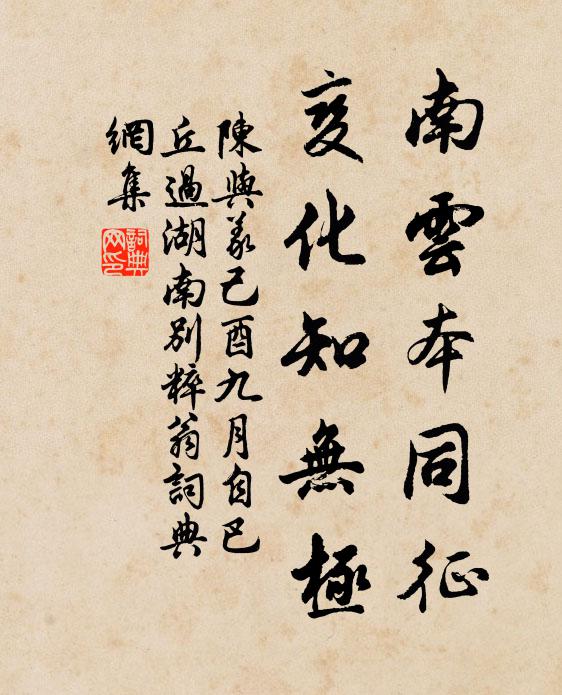 南雲本同征
變化知無極
陳與義己酉九月自巴
丘過湖南別粹翁詞典
網集
詞典網印